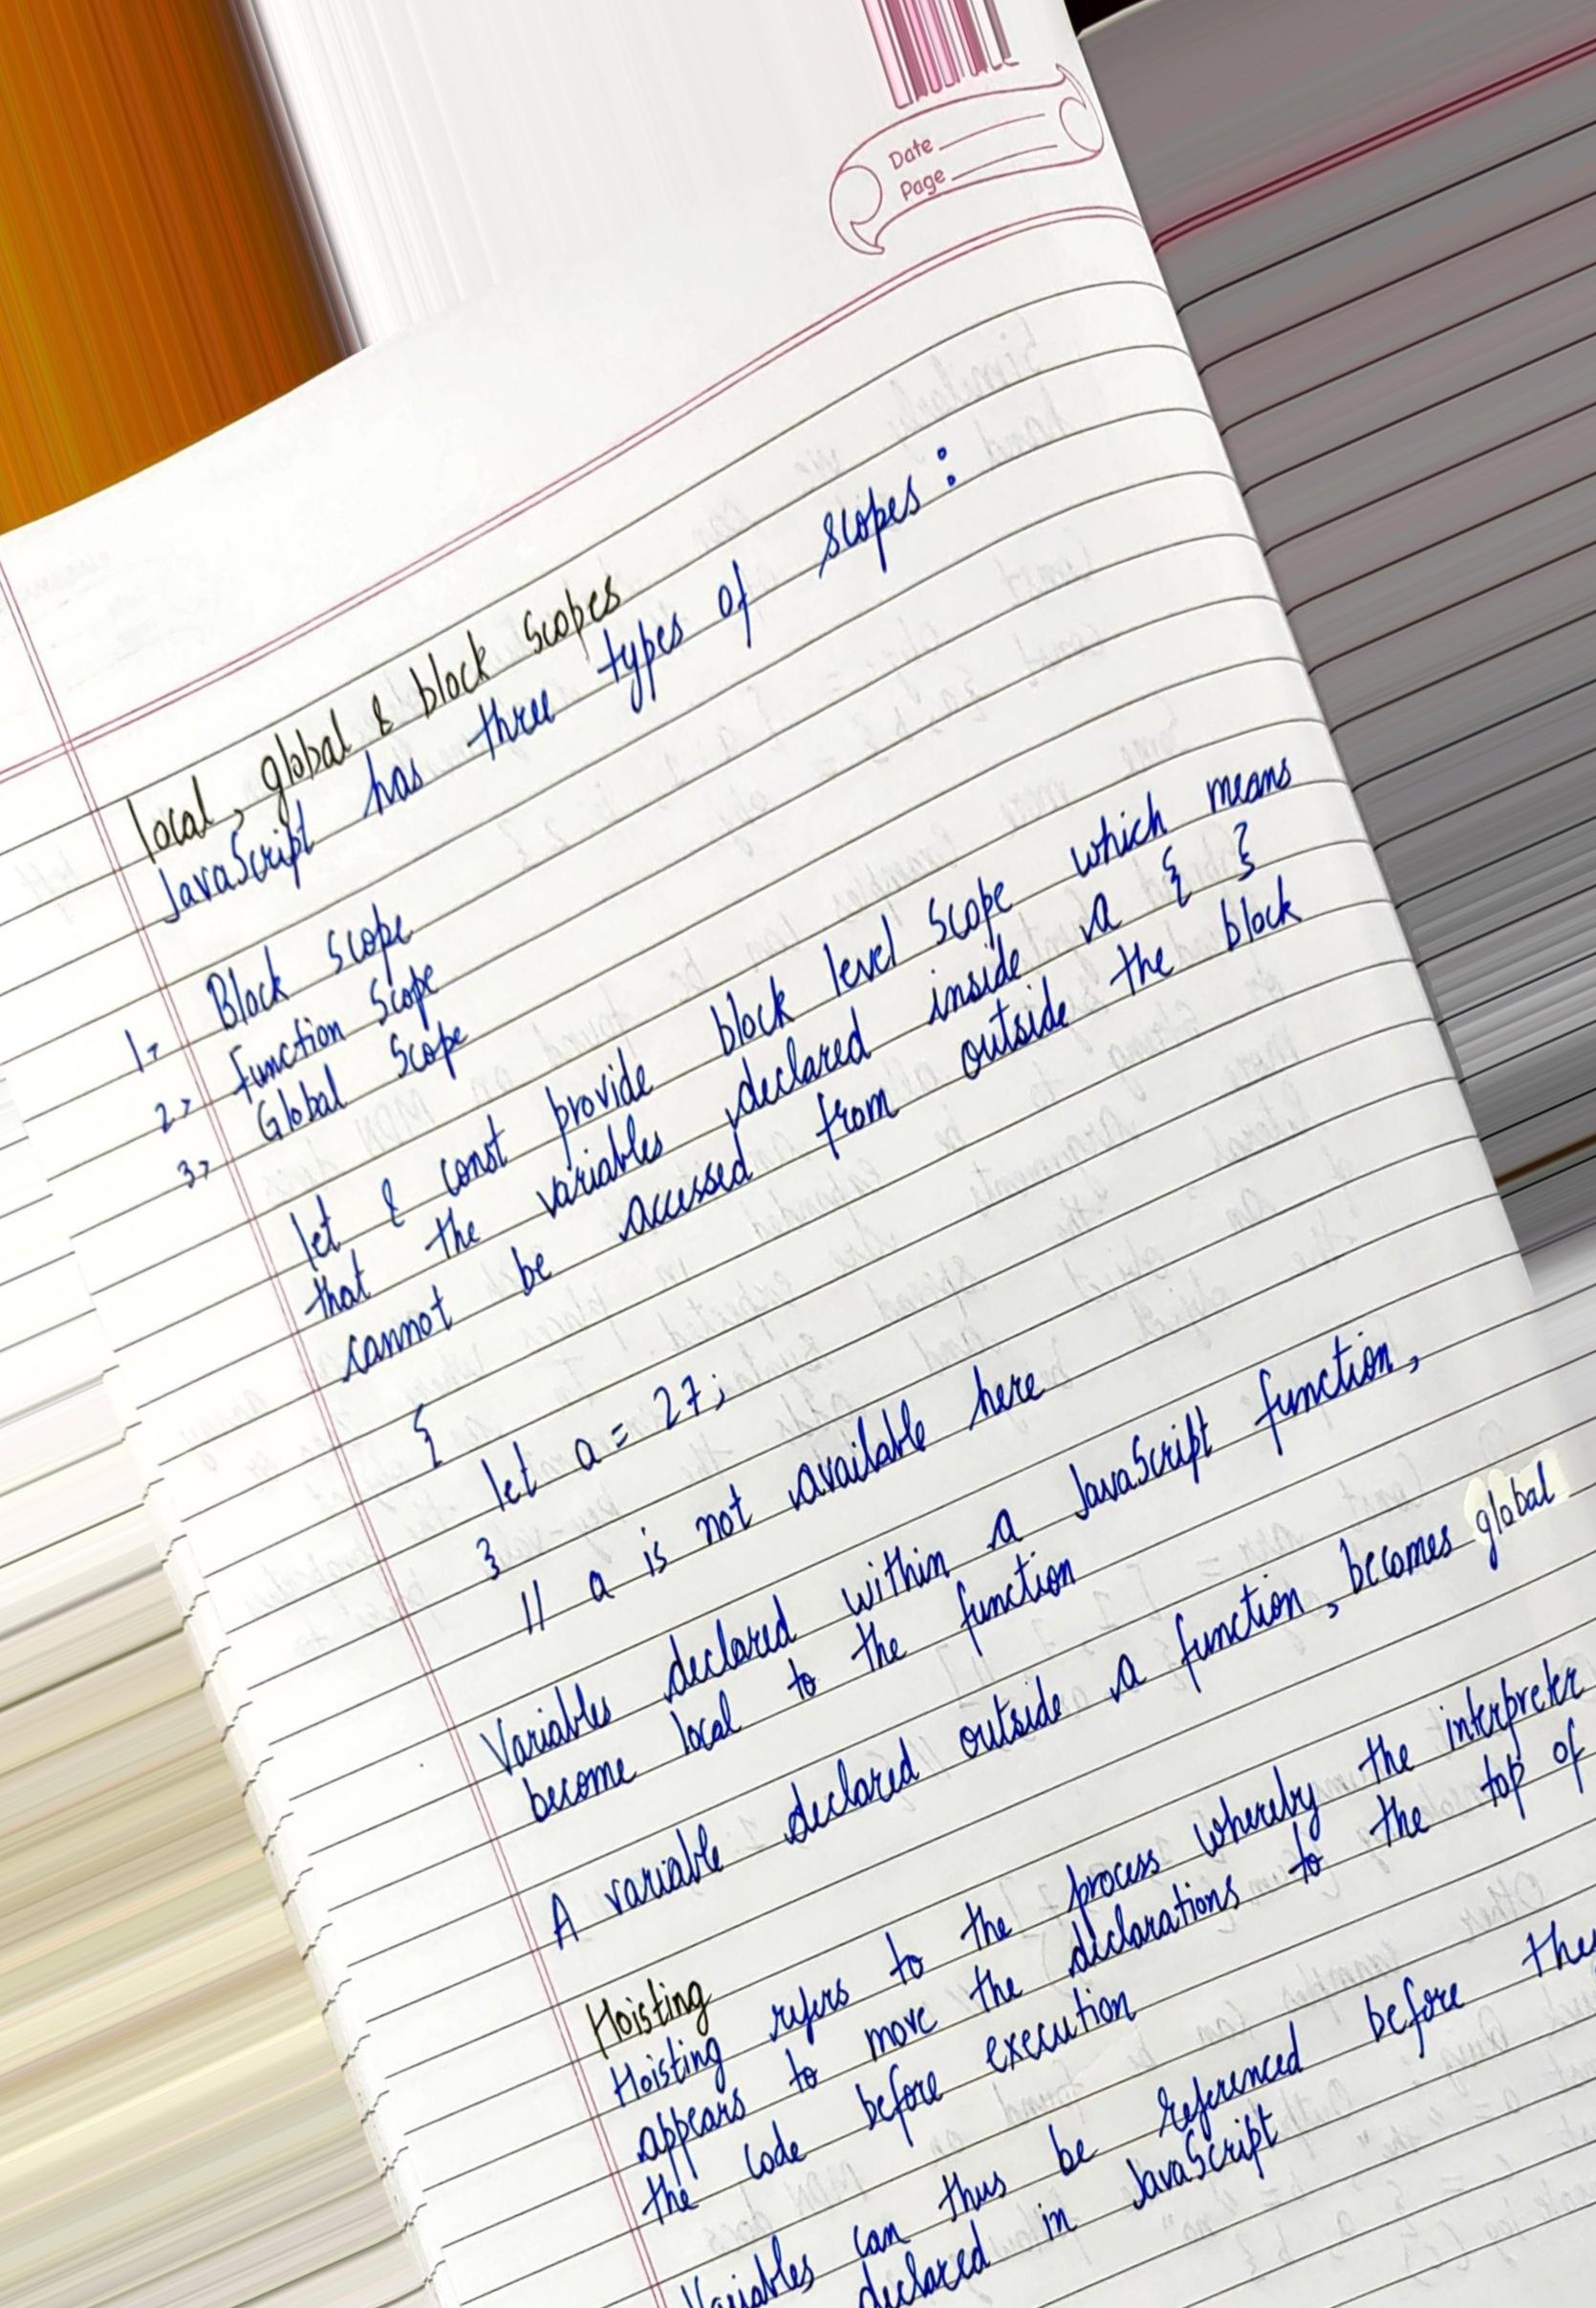 Date
Page
local, global & block scopes
JavaScript has three types of scopes:
1> Block scope
2> function Scope
3> Global Scope
let & const provide block level scope which means
that the variables declared inside a { }
cannot be accessed from outside the block
{
let a = 27;
}
// a is not available here
Variables declared within a JavaScript function,
become local to the function
A variable declared outside a function, becomes global
Hoisting
Hoisting refers to the process whereby the interpreter
appears to move the declarations to the top of
the code before execution
Variables can thus be referenced before they
declared in JavaScript